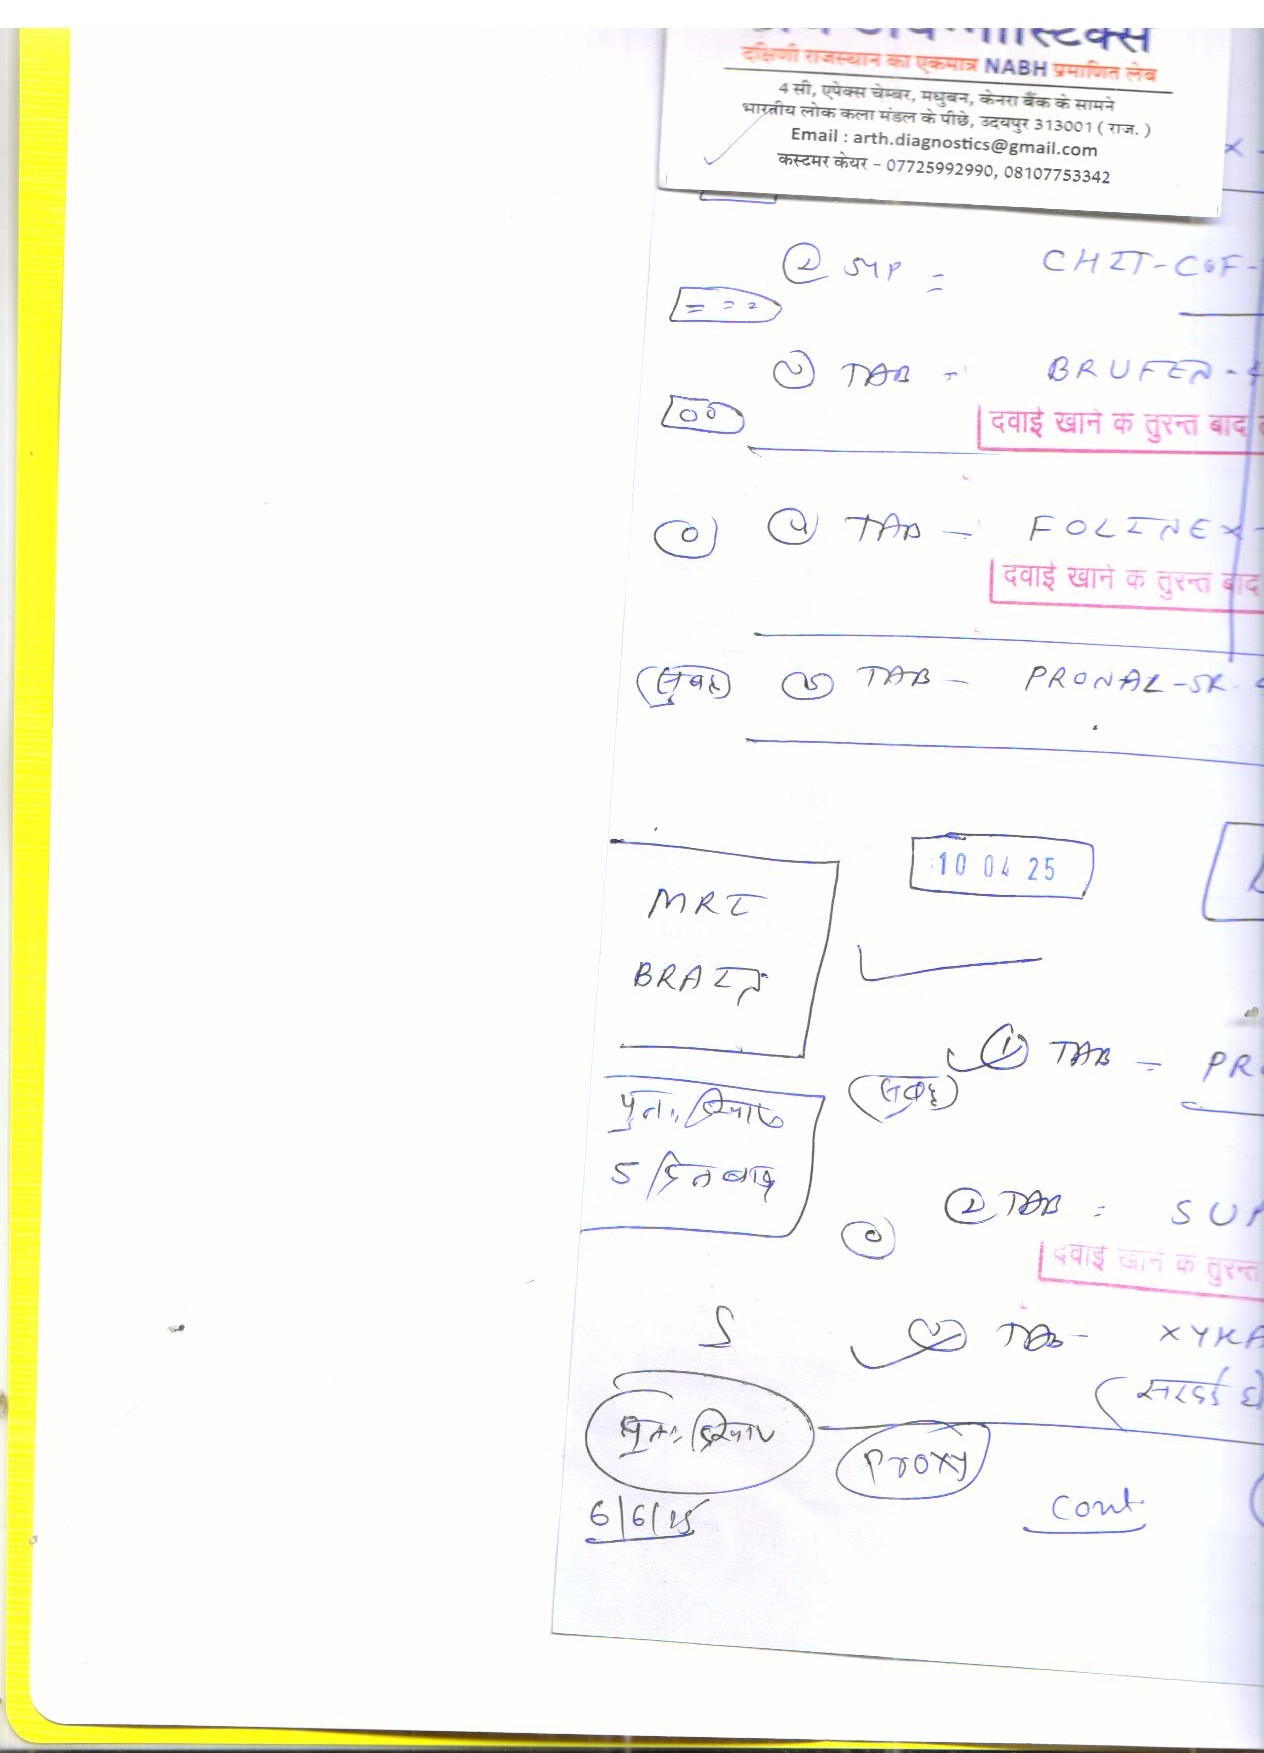 दक्षिणी राजस्थान का एकमात्र NABH प्रमाणित लेब
4 सी, एपेक्स चेम्बर, मधुबन, केनरा बैंक के सामने
भारतीय लोक कला मंडल के पीछे, उदयपुर 313001 ( राज. )
Email : arth.diagnostics@gmail.com
कस्टमर केयर - 07725992990, 08107753342
② SYP = CHIT-COF-
TAB - BRUFEN-4
दवाई खाने के तुरन्त बाद
TAB - FOLINEX-
दवाई खाने के तुरन्त बाद
सुबह ⑤ TAB - PRONAL-SR
10 04 25
MRI
BRAIN
① TAB - PR
सुबह
पुनः दिखाए
5 दिन बाद
② TAB = SUP
दवाई खाने के तुरन्त
TAB - XYKA
पुनः दिखाए
Proxy
Cont
6/6/25